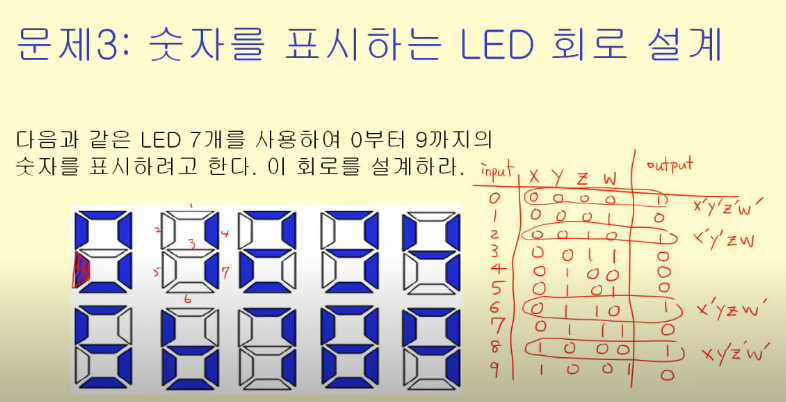 문제3: 숫자를 표시하는 LED 회로 설계
다음과 같은 LED 7개를 사용하여 0부터 9까지의
숫자를 표시하려고 한다. 이 회로를 설계하라.
1
2 3 4
5 7
6
input X Y Z W output
0 0 0 0 0 1 x'y'z'w'
1 0 0 0 1 0
2 0 0 1 0 1 x'y'zw
3 0 0 1 1 0
4 0 1 0 0 0
5 0 1 0 1 0
6 0 1 1 0 1 x'yzw'
7 0 1 1 1 0
8 1 0 0 0 1 xy'z'w'
9 1 0 0 1 0